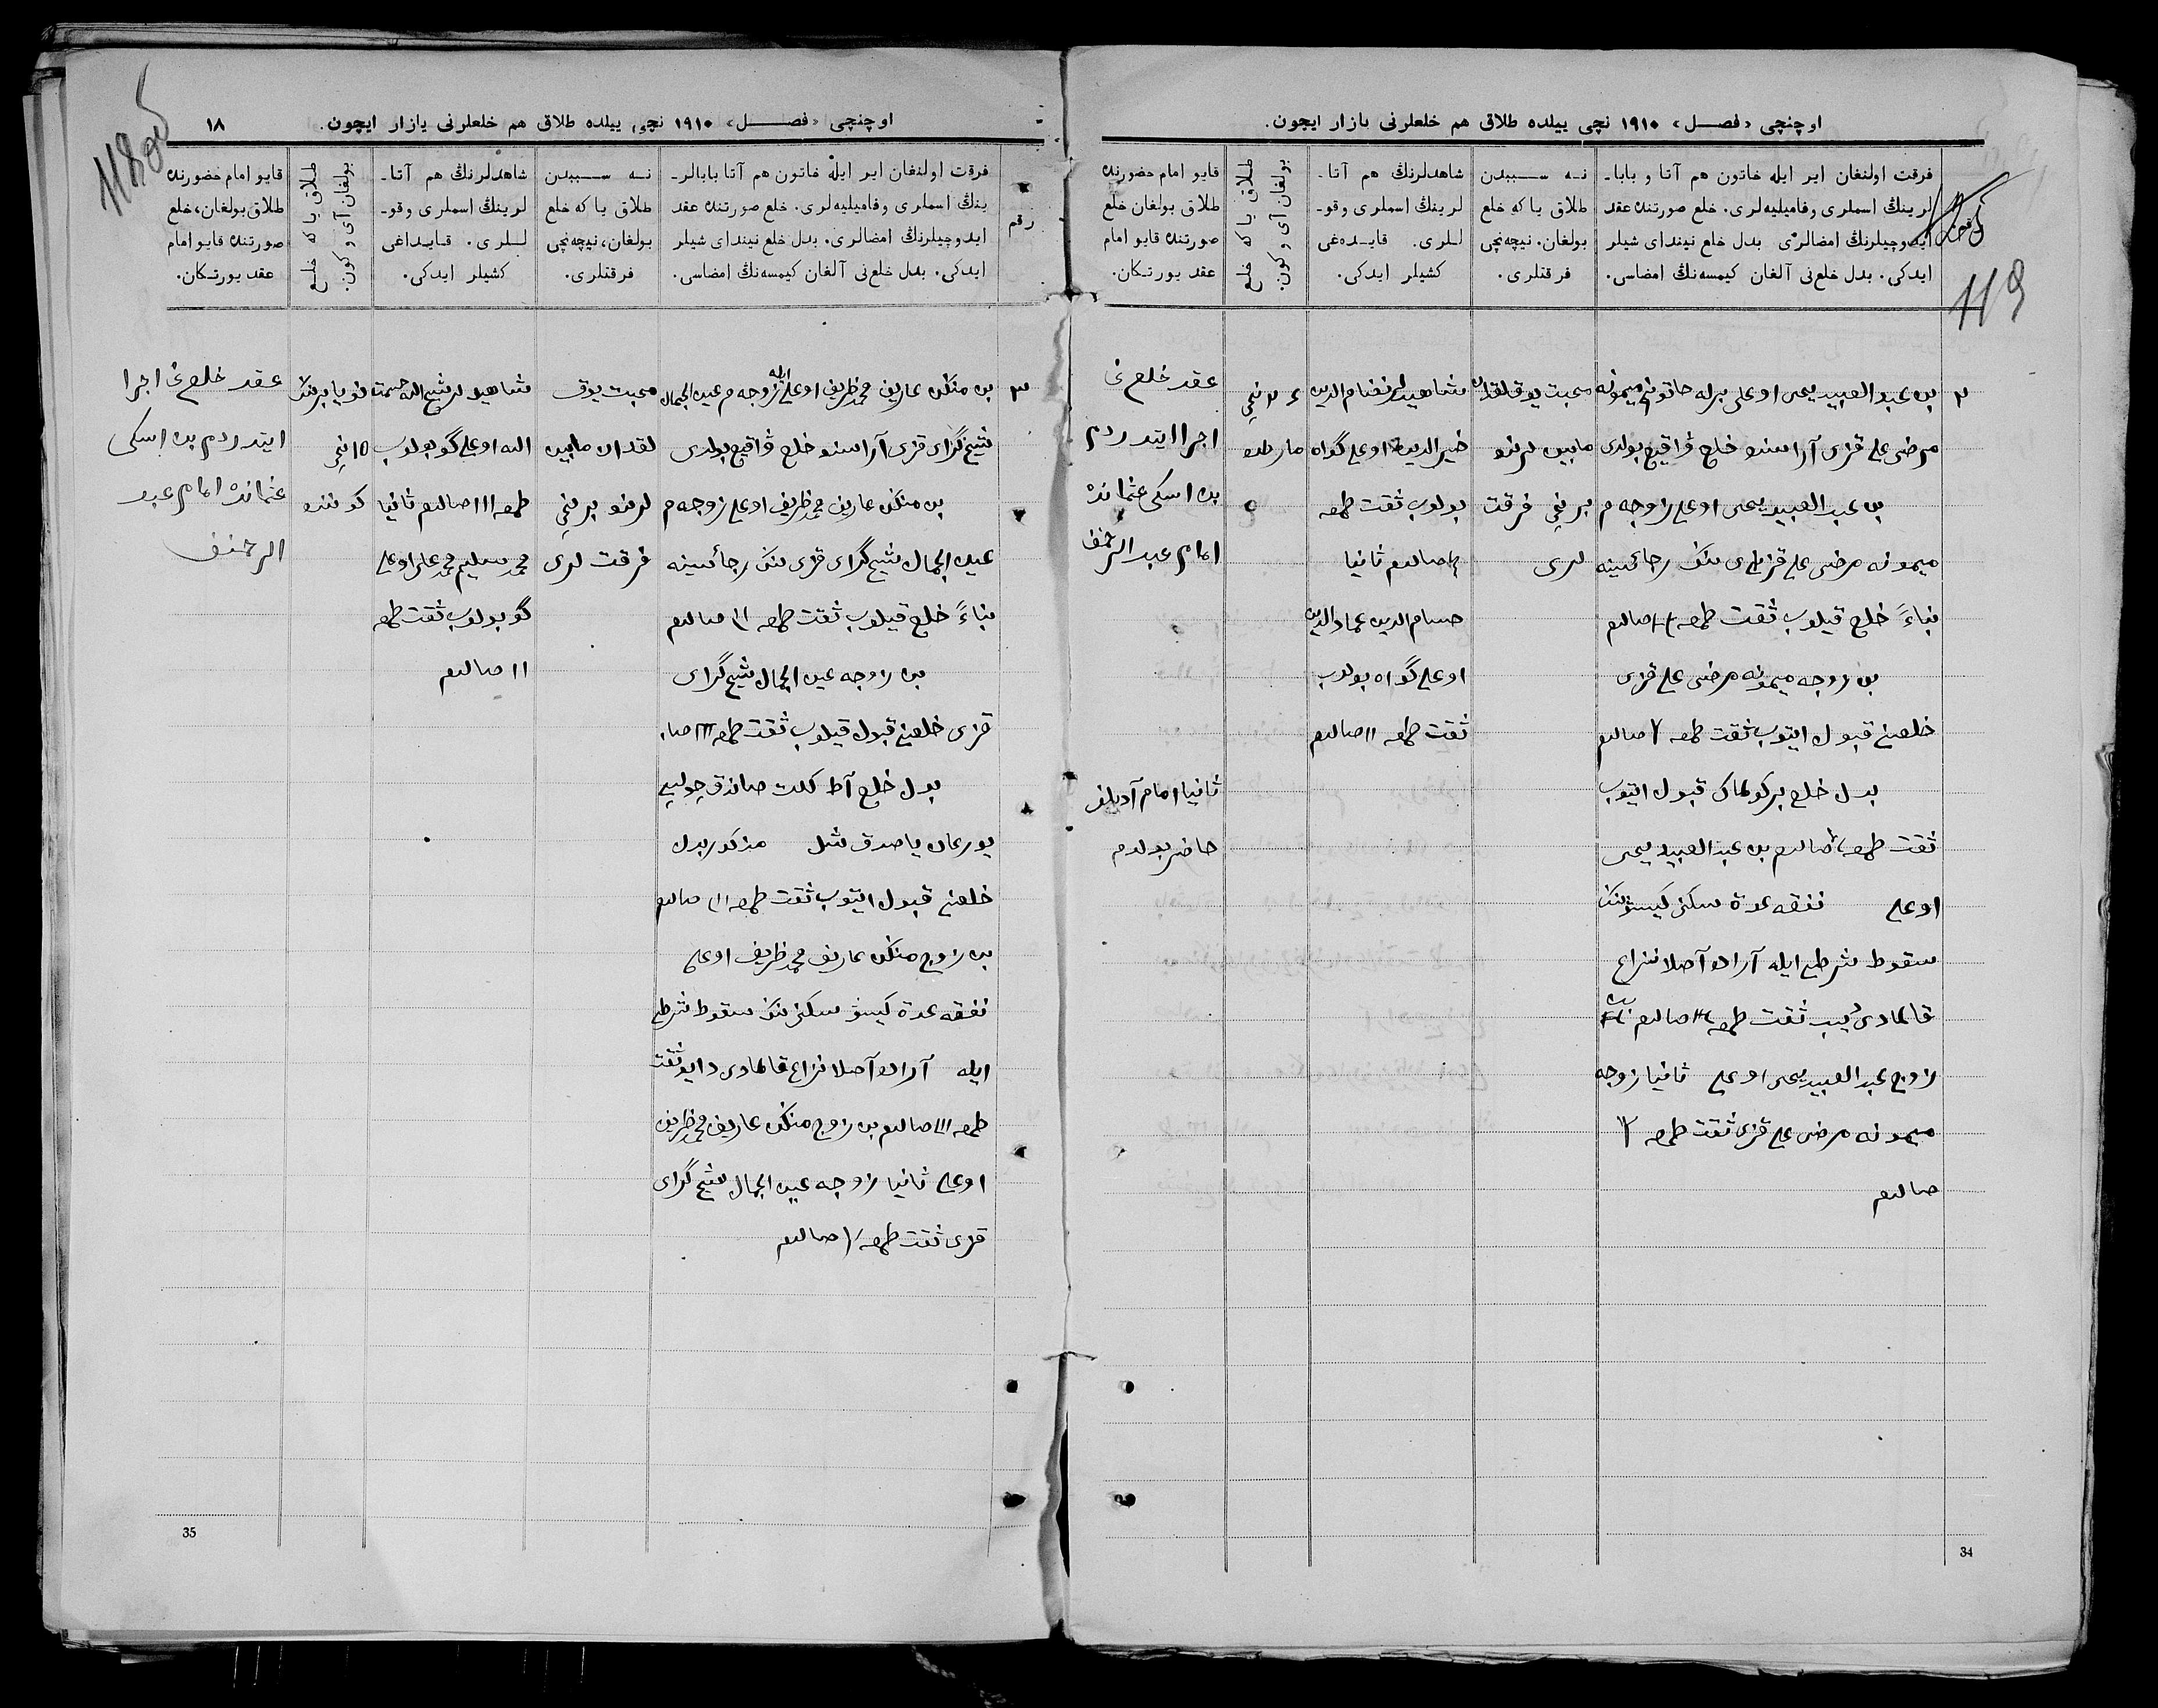 اوچنچی «فصل» ١٩١٠ نچی ییلده طلاق هم خلعلرنی یازار ایچون.
119
رقم
فرقت اولنغان ایر ایله خاتون هم آتا و بابا-
لرینڭ اسملری وفامیلیه‌لری. خلع صورتنده عقد
ایدوچیلرنڭ امضالری بدل خلع نیندای شیلر
ایدکی. بدل خلع‌نی آلغان کیمسه‌نڭ امضاسی.
نه سببدن
طلاق یا که خلع
بولغان. نیچه‌نچی
فرقتلری.
شاهدلرنڭ هم آتا-
لرینڭ اسملری وقو-
للری. قایده‌غی
کشیلر ایدکی.
طلاق یا که خلع
بولغان آی و کون.
قایو امام حضورنده
طلاق بولغان خلع
صورتنده قایو امام
عقد یورتکان.
٢
بن عبد العبید یحیی اوغلی برله خاتونم میمونه
مرضی علی قزی آراسنده خلع واقع بولدی
بن عبد العبید یحیی اوغلی زوجه م
میمونه مرضی علی قزی ننڭ رجاسینه
بناءً خلع قیلوب ثقت طمعه صالدم
بن زوجه میمونه مرضی علی قزی
خلعنی قبول ایتوب ثقت طمعه صالدم
بدل خلع بر کولماک قبول ایتوب
ثقت طمعه صالدم بن عبد العبید یحیی
اوغلی نفقه عدة سکنی کیسوه ننڭ
سقوط شرطی ایله آراده آصلا نزاع
قالمادی دییب ثقت طمعه صالدم
زوج عبد العبید یحیی اوغلی ثانیا زوجه
میمونه مرضی علی قزی ثقت طمعه
صالدم
محبت یوقلقدان
مابین لرنده
برنچی فرقت
لری
شاهیدلر نظام الدین
خیر الدین اوغلی گواه
بولوب ثقت طمعه
صالدم ثانیا
حسام الدین عماد الدین
اوغلی گواه بولوب
ثقت طمعه ١١ صالدم
٢٤ نچی
مارطده
عقد خلع نی
اجرا ایتدردم
بن اسکی عثماندە
امام عبد الرحمن
ثانیا امام
حاضر بولدم
34
اوچنچی «فصل» ١٩١٠ نچی ییلده طلاق هم خلعلرنی یازار ایچون.
١٨
118 об
رقم
فرقت اولنغان ایر ایله خاتون هم آتا بابالر-
ینڭ اسملری وفامیلیه‌لری. خلع صورتنده عقد
ایدوچیلرنڭ امضالری. بدل خلع نیندای شیلر
ایدکی. بدل خلع‌نی آلغان کیمسه‌نڭ امضاسی.
نه سببدن
طلاق یا که خلع
بولغان، نیچه‌نچی
فرقتلری.
شاهدلرنڭ هم آتا-
لرینڭ اسملری وقو-
للری. قایداغی
کشیلر ایدکی.
طلاق یا که خلع
بولغان آی و کون.
قایو امام حضورنده
طلاق بولغان، خلع
صورتنده قایو امام
عقد یورتکان.
٣
بن عاریف محمد ظریف اوغلی ایله زوجه م عین الجمال
شیخ گرای قزی آراسنده خلع واقع بولدی
بن عاریف محمد ظریف اوغلی زوجه م
عین الجمال شیخ گرای قزی ننڭ رجاسینه
بناءً خلع قیلوب ثقت طمعه صالدم
بن زوجه عین الجمال شیخ گرای
قزی خلعنی قبول قیلوب ثقت طمعه
بدل خلع صاندق
یورغان یاصدق مذکور بدل
خلعنی قبول ایتوب ثقت طمعه صالدم
بن زوج عاریف محمد ظریف اوغلی
نفقه عدة کیسوه سکنی ننڭ سقوط شرطی
ایله آراده آصلا نزاع قالمادی دایو ثقت
طمعه صالدم بن زوج عاریف محمد ظریف
اوغلی ثانیا زوجه عین الجمال شیخ گرای
قزی ثقت طمعه صالدم
محبت یوق
لقدان مابین
لرنده برنچی
فرقت لری
شاهیدلر شیخ الله حسمت
الله اوغلی گو بولوب
طمعه صالدم ثانیا
محمد سلیم محمد علی اوغلی
گو بولوب ثقت طمعه
١١ صالدم
نویابرننڭ
١٥ نچی
کوننده
عقد خلع نی اجرا
ایتدردم بن اسکی
عثماندە امام عبد
الرحمن
35